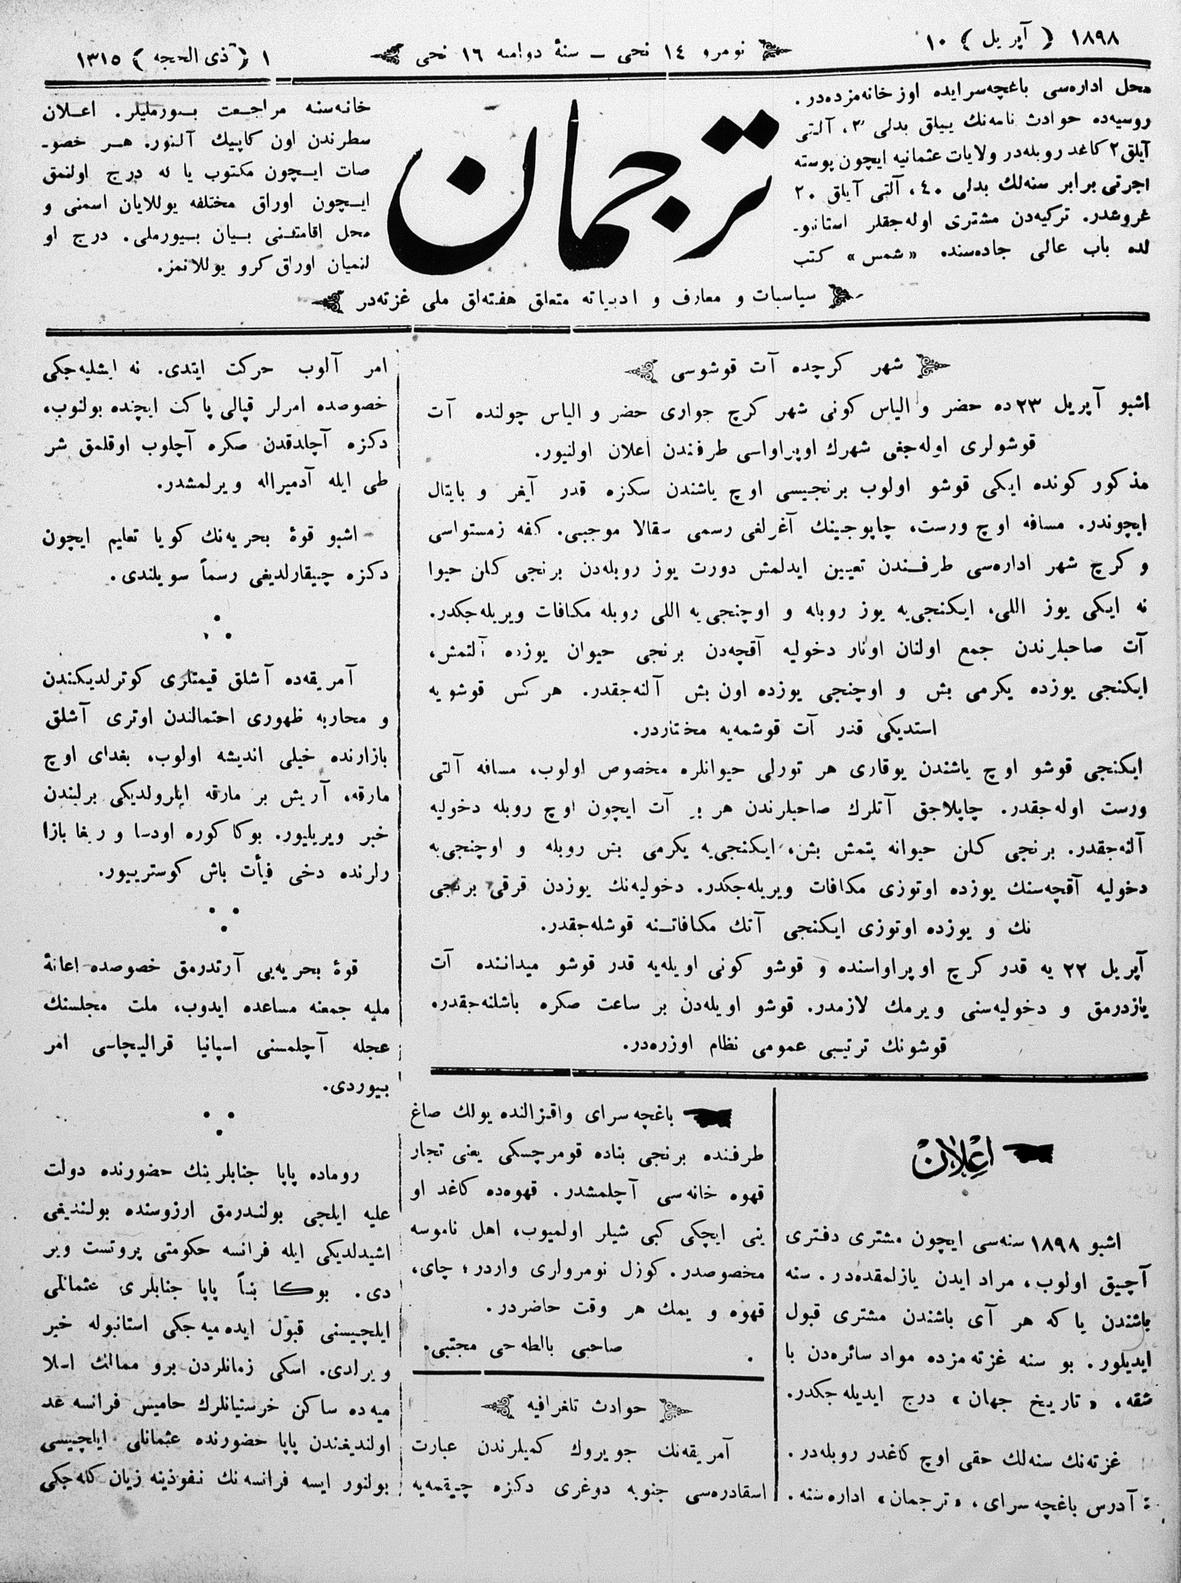 ١٨٩٨ ﴿ آپریل ﴾ ١٠
نومرو ١٤ نجی ــ سنهٔ دوامیه ١٦ نجی
١ ﴿ ذی الحجه ﴾ ١٣١٥
محل اداره‌سی باغچه‌سرایده اوز خانه‌مزده‌در.
روسیه‌ده حوادث نامه‌نك ییللق بدلی ٣، آلتی
آیلق ٢ كاغد روبله‌در ولایات عثمانیه ایچون پوسته
اجرتی برابر سنه‌لك بدلی ٤٠، آلتی آیلق ٢٠
غروشدر. تركیه‌دن مشتری اوله‌جقلر استانبو-
لده باب عالی جاده‌سنده «شمس» كتب
ترجمان
خانه‌سنه مراجعت بیورملیلر. اعلان
سطرندن اون كاپیك آلنور. هر خصو-
صات ایچون مكتوب یا له درج اولنمق
ایچون اوراق مختلفه یوللایان اسمنی و
محل اقامتنی بیان بیورملی. درج او
لنمیان اوراق كرو یوللانمز.
سیاسیات و معارف و ادبیاته متعلق هفته‌لق ملی غزته‌در
شهر كرچده آت قوشوسی
اشبو آپریل ٢٣ ده حضر و الیاس كونی شهر كرچ جواری حضر و الیاس چولنده آت
قوشولری اوله‌جغی شهرك اوپراواسی طرفندن اعلان اولنیور.
مذكور كونده ایكی قوشو اولوب برنجیسی اوچ یاشندن سكزه قدر آیغر و بایتال
ایچوندر. مسافه اوچ ورست، چاپوجینك آغرلغی رسمی سقالا موجبی. كفه زمستواسی
و كرچ شهر اداره‌سی طرفندن تعیین ایدلمش دورت یوز روبله‌دن برنجی كلن حیوا
نه ایكی یوز اللی، ایكنجی‌یه یوز روبله و اوچنجی‌یه اللی روبله مكافات ویریله‌جكدر.
آت صاحبلرندن جمع اولنان اونار دخولیه آقچه‌دن برنجی حیوان یوزده آلتمش،
ایكنجی یوزده یكرمی بش و اوچنجی یوزده اون بش آلنه‌جقدر. هر كس قوشویه
استدیكی قدر آت قوشمه‌یه مختاردر.
ایكنجی قوشو اوچ یاشندن یوقاری هر تورلی حیوانلره مخصوص اولوب، مسافه آلتی
ورست اوله‌جقدر. چاپلاجق آتلرك صاحبلرندن هر بر آت ایچون اوچ روبله دخولیه
آلنه‌جقدر. برنجی كلن حیوانه یتمش بش، ایكنجی‌یه یكرمی بش روبله و اوچنجی‌یه
دخولیه آقچه‌سنك یوزده اوتوزی مكافات ویریله‌جكدر. دخولیه‌نك یوزدن قرقی برنجی
نك و یوزده اوتوزی ایكنجی آتك مكافاتنه قوشله‌جقدر.
آپریل ٢٢ یه قدر كرچ اوپراواسنده و قوشو كونی اویله‌یه قدر قوشو میداننده آت
یازدرمق و دخولیه‌سنی ویرمك لازمدر. قوشو اویله‌دن بر ساعت صكره باشلنه‌جقدر.
قوشونك ترتیبی عمومی نظام اوزره‌در.
اعلان
اشبو ١٨٩٨ سنه‌سی ایچون مشتری دفتری
آچیق اولوب، مراد ایدن یازلمقده‌در. سنه
باشندن یا كه هر آی باشندن مشتری قبول
ایدیلور. بو سنه غزته‌مزده مواد سائره‌دن با
شقه، «تاریخ جهان» درج ایدیله‌جكدر.
غزته‌نك سنه‌لك حقی اوچ كاغدر روبله‌در.
آدرس باغچه سرای، «ترجمان» اداره‌سنه.
باغچه‌سرای واقزالنده یولك صاغ
طرفنده برنجی بناده قومرچسكی یعنی تجار
قهوه خانه‌سی آچلمشدر. قهوه‌ده كاغد او
ینی ایچكی كبی شیلر اولمیوب، اهل ناموسه
مخصوصدر. كوزل نومرولری واردر؛ چای،
قهوه و یمك هر وقت حاضردر.
صاحبی بالطه‌جی مجتبی.
حوادث تلغرافیه
آمریقه‌نك جویروك كمیلرندن عبارت
اسقادره‌سی جنوبه دوغری دكزه چیقمه‌یه
امر آلوب حركت ایتدی. نه ایشلیه‌جكی
خصوصده امرلر قپالی پاكت ایچنده بولنوب،
دكزه آچلدقدن صكره آچلوب اوقلمق شر
طی ایله آدمیراله ویرلمشدر.
ــ اشبو قوهٔ بحریه‌نك كویا تعلیم ایچون
دكزه چیقارلدیغی رسماً سویلندی.
آمریقه‌ده آشلق قیمتلری كوترلدیكندن
و محاربه ظهوری احتمالندن اوتری آشلق
بازارنده خیلی اندیشه اولوب، بغدای اوچ
مارقه، آریش بر مارقه ایلرولدیكی برلیندن
خبر ویریلیور. بوكا كوره اودسا و ریغا بازا
رلرنده دخی فیأت باش كوسترییور.
قوهٔ بحریه‌یی آرتدرمق خصوصده اعانهٔ
ملیه جمعنه مساعده ایدوب، ملت مجلسنك
عجله آچلمسنی اسپانیا قرالیچاسی امر
بیوردی.
روماده پاپا جنابلرینك حضورنده دولت
علیه ایلچی بولندرمق ارزوسنده بولندیغی
اشیدلدیكی ایله فرانسه حكومتی پروتست ویر
دی. بوكا بناً پاپا جنابلری عثمانلی
ایلچیسنی قبول ایده‌میه‌جكی استانبوله خبر
ویرلدی. اسكی زمانلردن برو ممالك اسلا
میه‌ده ساكن خرستیانلرك حامیسی فرانسه عد
اولندیغندن پاپا حضورنده عثمانلی ایلچیسی
بولنور ایسه فرانسه‌نك نفوذینه زیان كله‌جكی